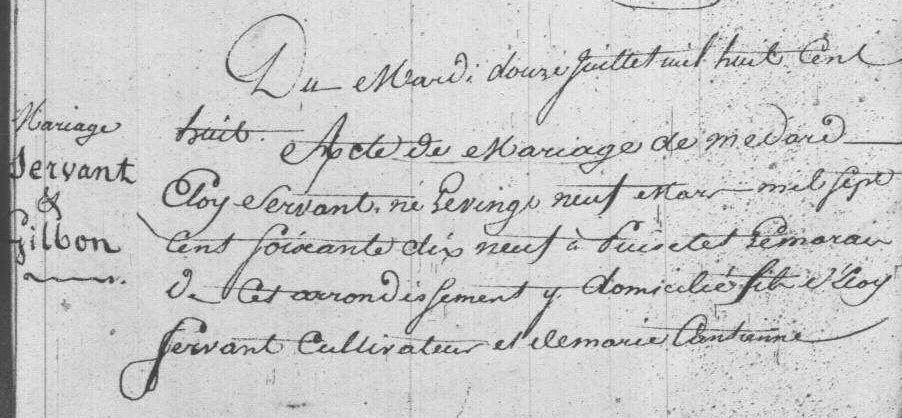 Du Mardi douze Juillet mil huit Cent
Mariage
huit. Acte de Mariage de medard
Servant
Eloy Servant. né Le vingt neuf Mars mil sept
&
Gilbon
Cent soixante dix neuf à Puiselet Lemarai
De Cet arrondissement y domicilié fils d'Eloy
Servant Cultivateur et de marie Cantienne